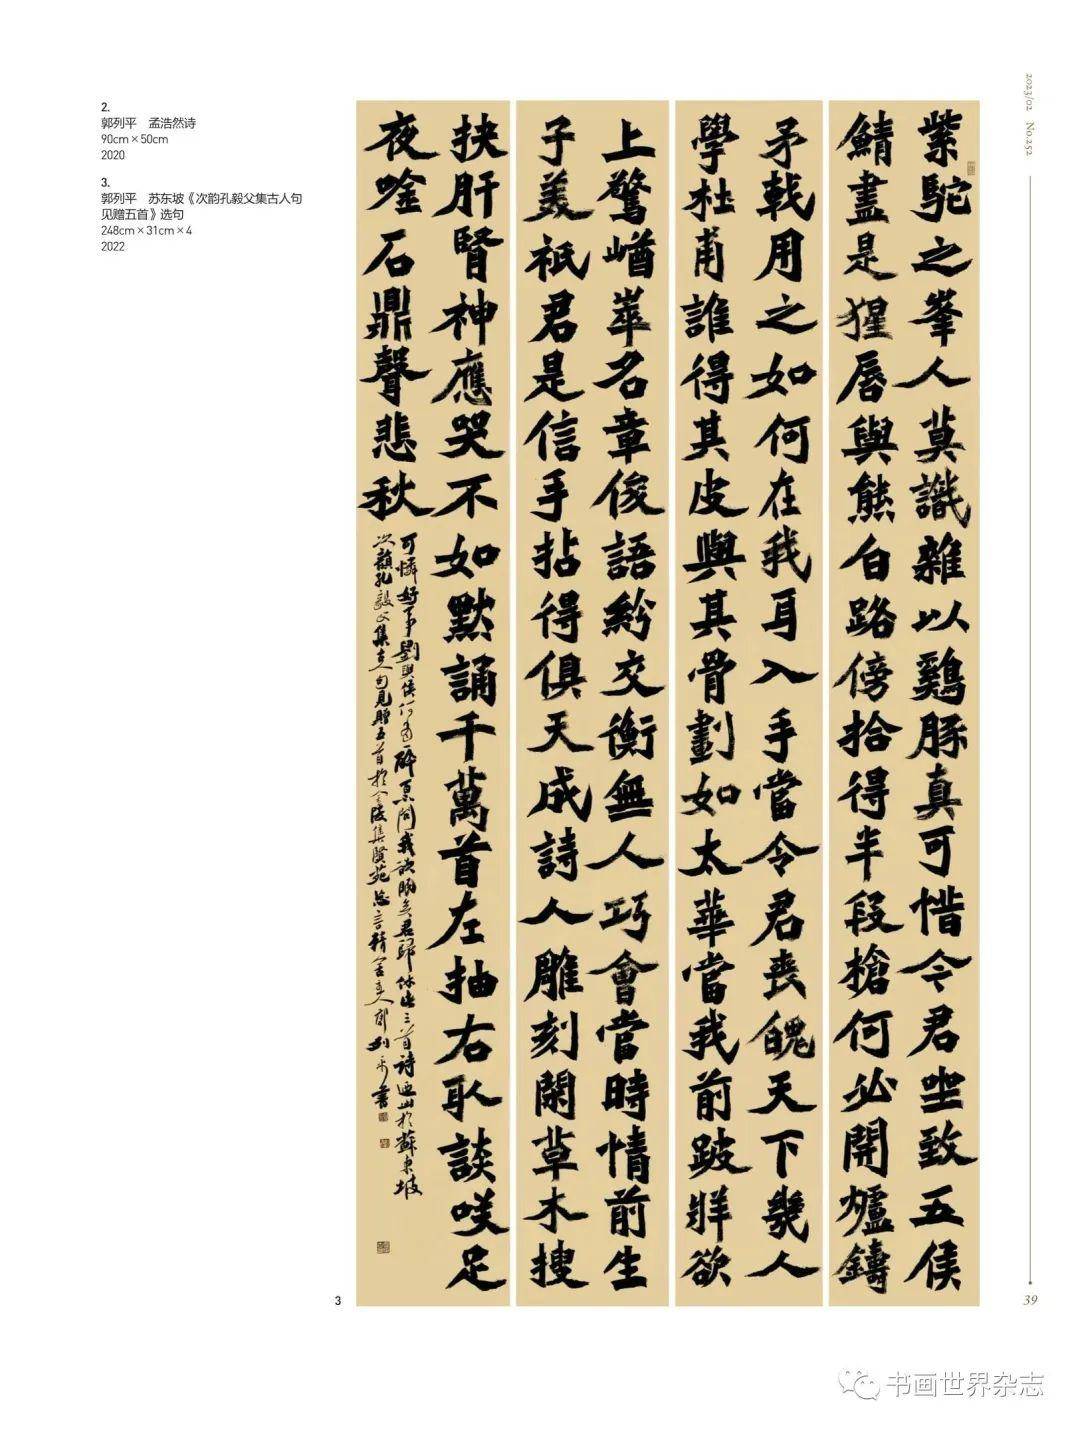 2.
郭列平 孟浩然诗
90cm×50cm
2020
3.
郭列平 苏东坡《次韵孔毅父集古人句
见赠五首》选句
248cm×31cm×4
2022
2023/02 No.252
紫駝之峯人莫識雜以鷄豚真可惜今君坐致五侯
鯖盡是猩唇與熊白路傍拾得半段槍何必開爐鑄
矛戟用之如何在我耳入手當令君喪魄天下幾人
學杜甫誰得其皮與其骨劃如太華當我前跛牂欲
上驚崷崒名章俊語紛交衡無人巧會當時情前生
子美祇君是信手拈得俱天成詩人雕刻閑草木搜
抉肝腎神應哭不如默誦千萬首左抽右取談笑足
夜唫石鼎聲悲秋
可憐好事劉與侯何當一醉百不問我欲眠矣君歸休三首詩於蘇東坡
次韻孔毅父集古人句見贈五首於金陵集賢苑忘言精舍主人郭列平書
3
39
书画世界杂志